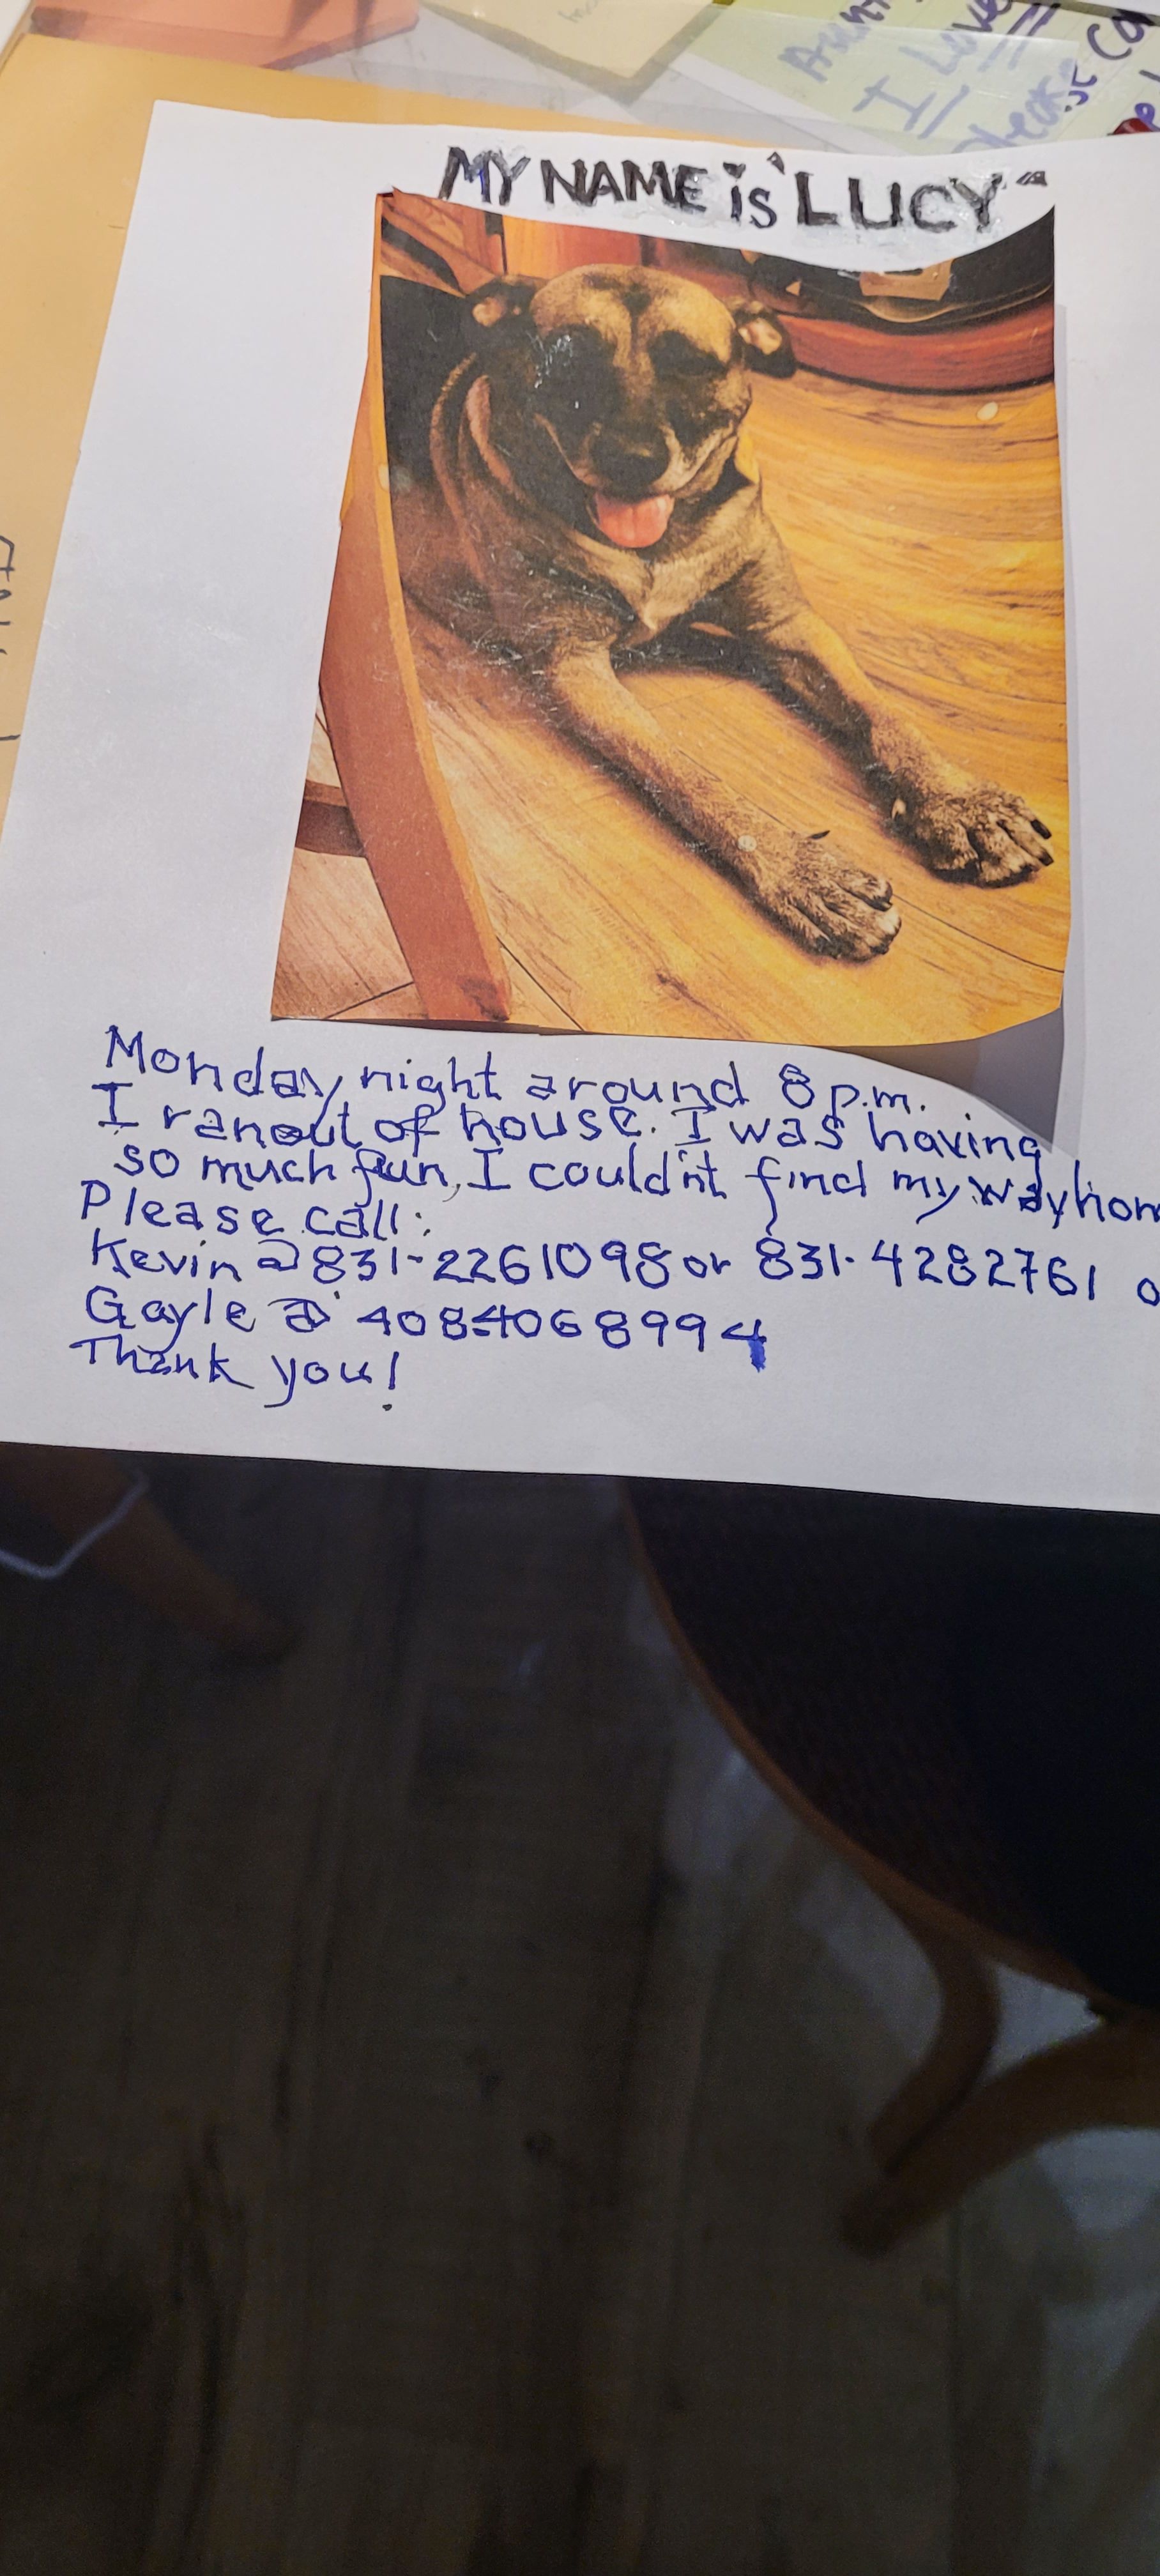 I Love
MY NAME is "LUCY"
Monday night around 8 p.m.
I ran out of house. I was having
so much fun, I couldn't find my way hom
Please call:
Kevin @ 831-2261098 or 831-4282761 o
Gayle @ 408-4068994
Thank you!